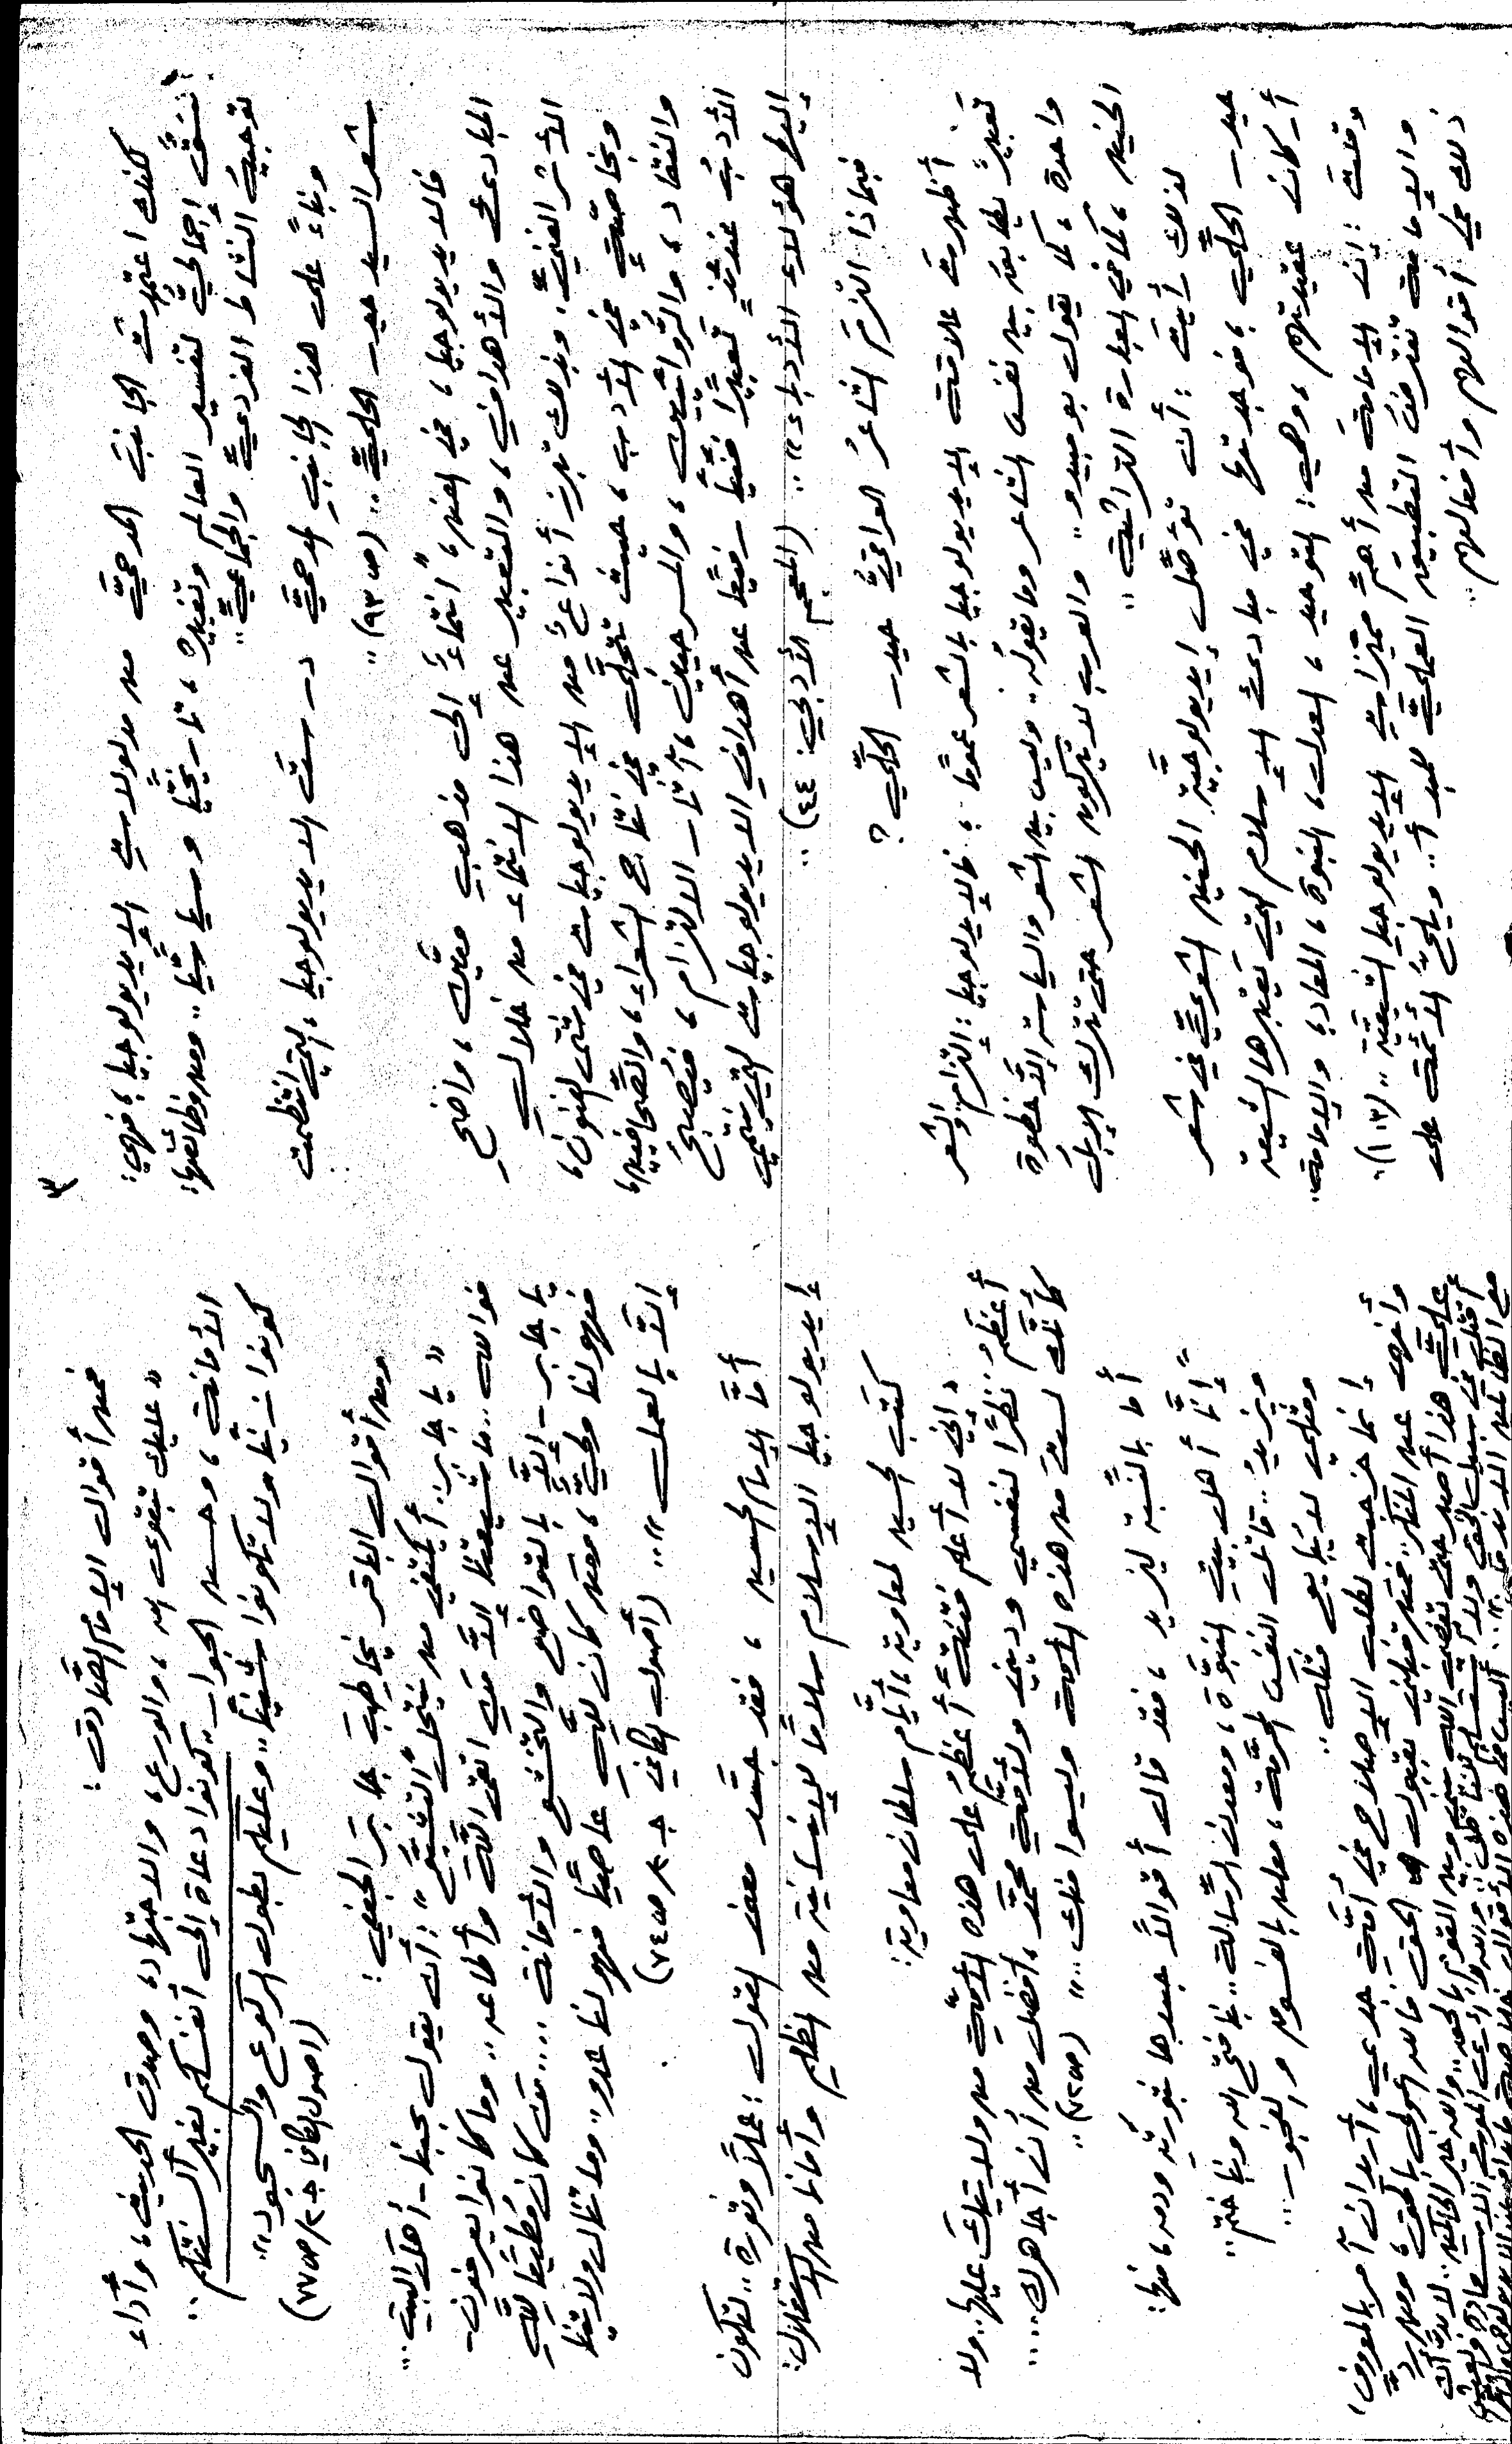 ٣
لكنك اعتمدت الجانب المدحيّ من مدلولات الإيديولوجيا، فهي:
نسق إجماليّ لتفسير العالم وتغييره، تاريخيّا وسياسيّا.. ومن وظائفها:
توجيه النشاط الفرديّ والجماعيّ"
وبناءً على هذا الجانب المدحيّ درستَ الايديولوجيا، التي انتظمت
شعر السيد حيدر الحليّ.. (ص٩٣)"
فالايديولوجيا، في الفن، انتماءٌ إلى مذهبٍ معيّن، واضح
المبادئ والأهداف، والتعبير عن هذا الانتماء من خلال
الأثر الفنيّ. وبذلك تبرز أنواعٌ من الإيديولوجيات في شتى الفنون،
وبخاصّةٍ في الأدب، حيث تتجلّى في نتاج الشعراء، والصّحافيين،
والنقاد، والرّوائيين، والمسرحيين، آثار الالتزام، فيُصبح
الأدبُ عندئذٍ تعبيرًا فنيّا رفيعًا عن أهداف الايديولوجيات التي ينتمي
إليها هؤلاء الأدباء".. (المعجم الأدبي: ٤٤)..
فبماذا التزمَ الشاعرُ العراقيُّ حيدر الحلّي؟
أظهرتَ علاقة الإيديولوجيا بالشعر عمومًا، فالإيديولوجيا: إلتزام والشعر
تعبيرٌ يطابعه بين نفس الشاعر وما يقوله.. وليس بين الشعر والسياسة إلّا خطوة
واحدة، كما يقول بومبيدو.. والعرب لا يتركون الشعر حتى تترك الإبل
الحنين، كما في العبارة التراثية..
لذلك رأيتَ: أن توصّل إيديولوجيّة الحنين الشعريّ في شعر
حيدر الحلّي، فوجدتها في مبادئ الإسلام التي تعتبرها الشيعة
أركان عقيدتهم، وهي: التوحيد، العدل، النبوة، المعاد، والإمامة.
وقلتَ: إن الإمامة من أهمّ مميّزات الإيديولوجيا الشيعيّة.. (١٠٣).
والإمامة تفترض التطبيق العمليّ للمبدأ.. ويلحّ الأئمّة على
ذلك في أقوالهم وأفعالهم..
فمن أقوال الإمام الصّادق:
"عليك بتقوى الله، والورع، والاجتهاد، وصدق الحديث، وأداء
الأمانة، وحسن الجوار.. كونوا دعاةً إلى أنفسكم بغير ألسنتكم..
كونوا زينًا ولا تكونوا شينًا.. وعليكم بطول الركوع والسجود".
(اصول الكافي ج٢/ص٧٧)
ومن أقوال الباقر يخاطبَ جابرَ الجعفي:
"يا جابر.. أيكتفي من ينتحل "التشيّع": أن يقول بحبنا - أهلَ البيت..
فوالله.. ما شيعتنا إلّا من اتّقى اللّه وأطاعه.. وما كانوا يعرفون -
يا جابر - إلّا بالتواضع والتخشّع والأمانة.... مَن كان مطيعًا للّهِ
فهو لنا وليّ، ومَن كان للّهِ عاصيًا فهو لنا عدو.. وما تنال ولايتنا
إلّا بالعمل".. (أصول الكافي ج٢/ص٧٤)
أمّا الإمام الحسين، فقد جسّد معنى القول: عملًا وثورة.. لتكون
إيديولوجيا الإسلام سلامًا للإنسانية من الظلم وأمانا من الاستغلال:
كتب الحسين لمعاوية، أيّام سلطان معاوية:
"إني لا أعلم فتنةً أعظمَ على هذه الأمّة من ولايتك عليها.. ولا
أعظم نظرًا لنفسي وديني ولأمّة محمّد، أفضل من أن أجاهرك....
كأنّك لستَ من هذه الأمة وليسوا منك.." (ص٧٢)"
أما بالنسبة ليزيد، فقد قال أقوالًا جسدها بثورته ودمه، منها:
"إنّا أهل بيت النبوّة، ومعدن الرّسالة.. بنا فتح الله وبنا ختم"..
ويزيدُ.. قاتل النفس المحرّمة، معلن بالفسوق والفجور...
ومثلي لا يُبايع مثله"..
إنما خرجت لطلب الإصلاح في أمّة جدي، أريد أن آمر بالمعروف،
وأنهى عن المنكر.. فمن قبلني بقبول الحق فالله أولى بالحق، ومن ردّ
عليّ هذا أصبر حتى يقضي الله بيني وبين القوم بالحق.. والله خير الحاكمين..